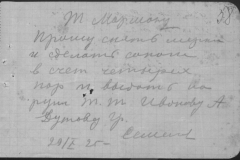 Т Маршаку
Прошу снять мерки
и сделать сапоги
в счет четырех
пар и выдать на
руки Т.Т Ивонову А
Дутову Гр.
20/X 25
58